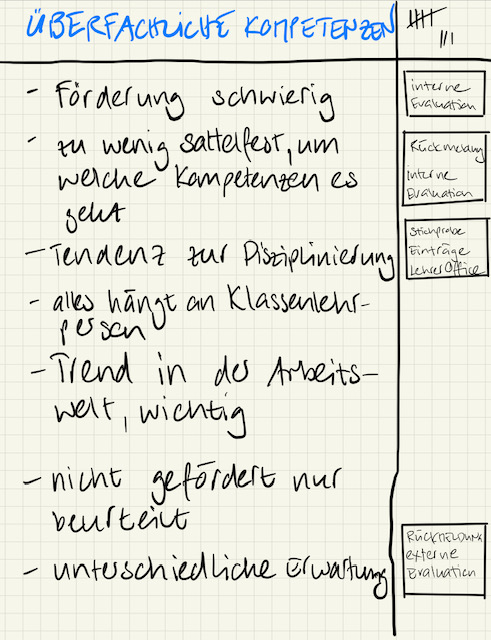 ÜBERFACHLICHE KOMPETENZEN
- Förderung schwierig
- zu wenig sattelfest, um
welche Kompetenzen es
geht
- Tendenz zur Disziplinierung
- alles hängt an Klassenlehr-
person
- Trend in der Arbeits-
welt, wichtig
- nicht gefördert nur
beurteilt
- unterschiedliche Erwartung
interne
Evaluation
Rückmeldung
interne
Evaluation
Stichprobe
Einträge
LehrerOffice
RÜCKMELDUNG
externe
Evaluation